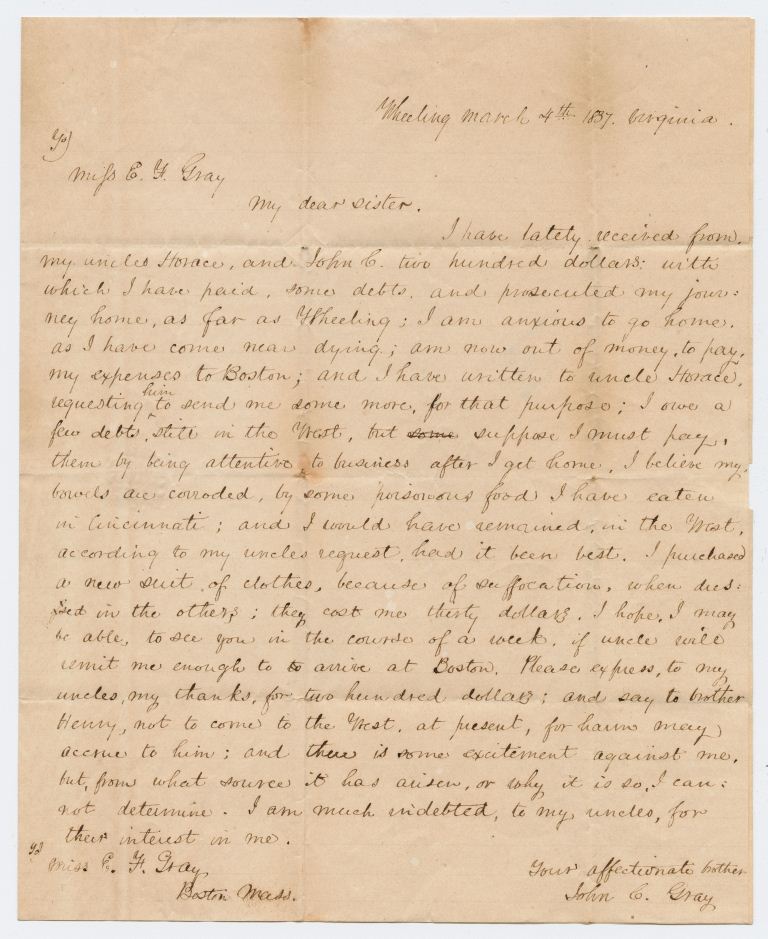 Wheeling march 4th 1837. Virginia.
Miss E. F. Gray
My dear sister.
I have lately received from
my uncles Horace, and John C. two hundred dollars; with
which I have paid, some debts, and prosecuted my jour:
ney home, as far as Wheeling; I am anxious to go home,
as I have come near dying; am now out of money, to pay,
my expenses to Boston; and I have written to uncle Horace,
requesting him to send me some more, for that purpose; I owe a
few debts, still in the West, but some suppose I must pay,
them by being attentive to business after I get home, I believe my
bowels are corroded, by some poisonous food I have eaten
in Cincinnati; and I would have remained, in the West,
according to my uncles request, had it been best. I purchased
a new suit of clothes, because of suffocation, when dres:
sed in the others; they cost me thirty dollars. I hope, I may
be able, to see you in the course of a week, if uncle will
remit me enough to to arrive at Boston. Please express, to my
uncles, my thanks, for two hundred dollars; and say to brother
Henry, not to come to the West, at present, for harm may
accrue to him; and there is some excitement against me,
but, from what source it has arisen, or why it is so, I can:
not determine. I am much indebted, to my uncles, for
their interest in me.
Miss E. F. Gray
Boston Mass.
Your affectionate brother
John C. Gray